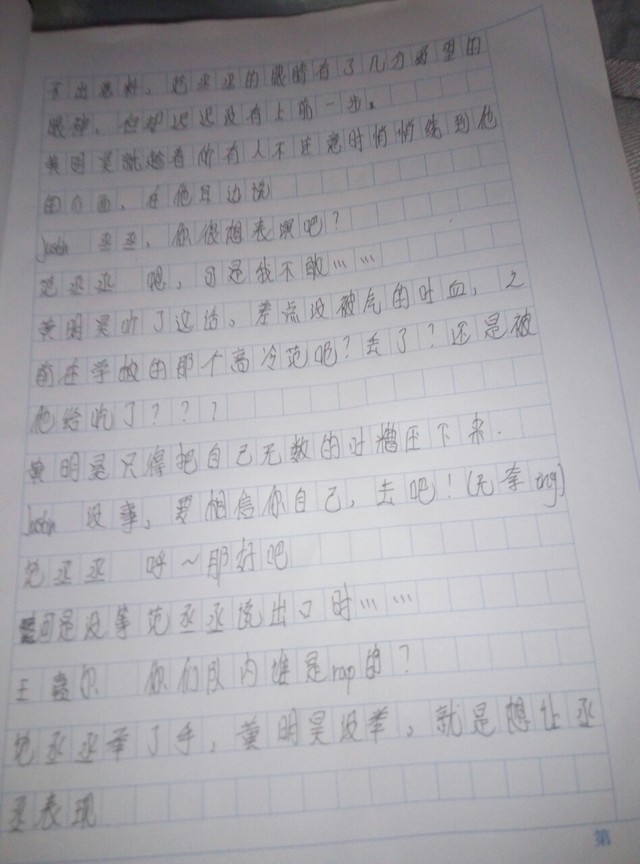 出来好，范丞丞的眼睛有了几分希望的
眼神，但却迟迟没有上前一步。
黄明昊就趁着所有人不注意时悄悄绕到他
的后面，在他耳边说
Justin 丞丞，你很想表现吧？
范丞丞 嗯，可是我不敢……
黄明昊听了这话，差点没被气的吐血，之
前在学校的那个高冷范呢？丢了？还是被
他给吃了？？？
黄明昊只得把自己无数的吐槽压下来.
Justin 没事，要相信你自己，去吧！(无奈ing)
范丞丞 呼～那好吧
可是没等范丞丞说出口时……
王意尔 你们队内谁是rap的？
范丞丞举了手，黄明昊没举，就是想让丞
丞表现
第